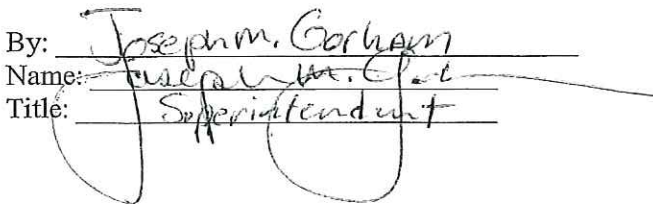 By: Joseph M. Gorham
Name: Joseph M.
Title: Superintendent